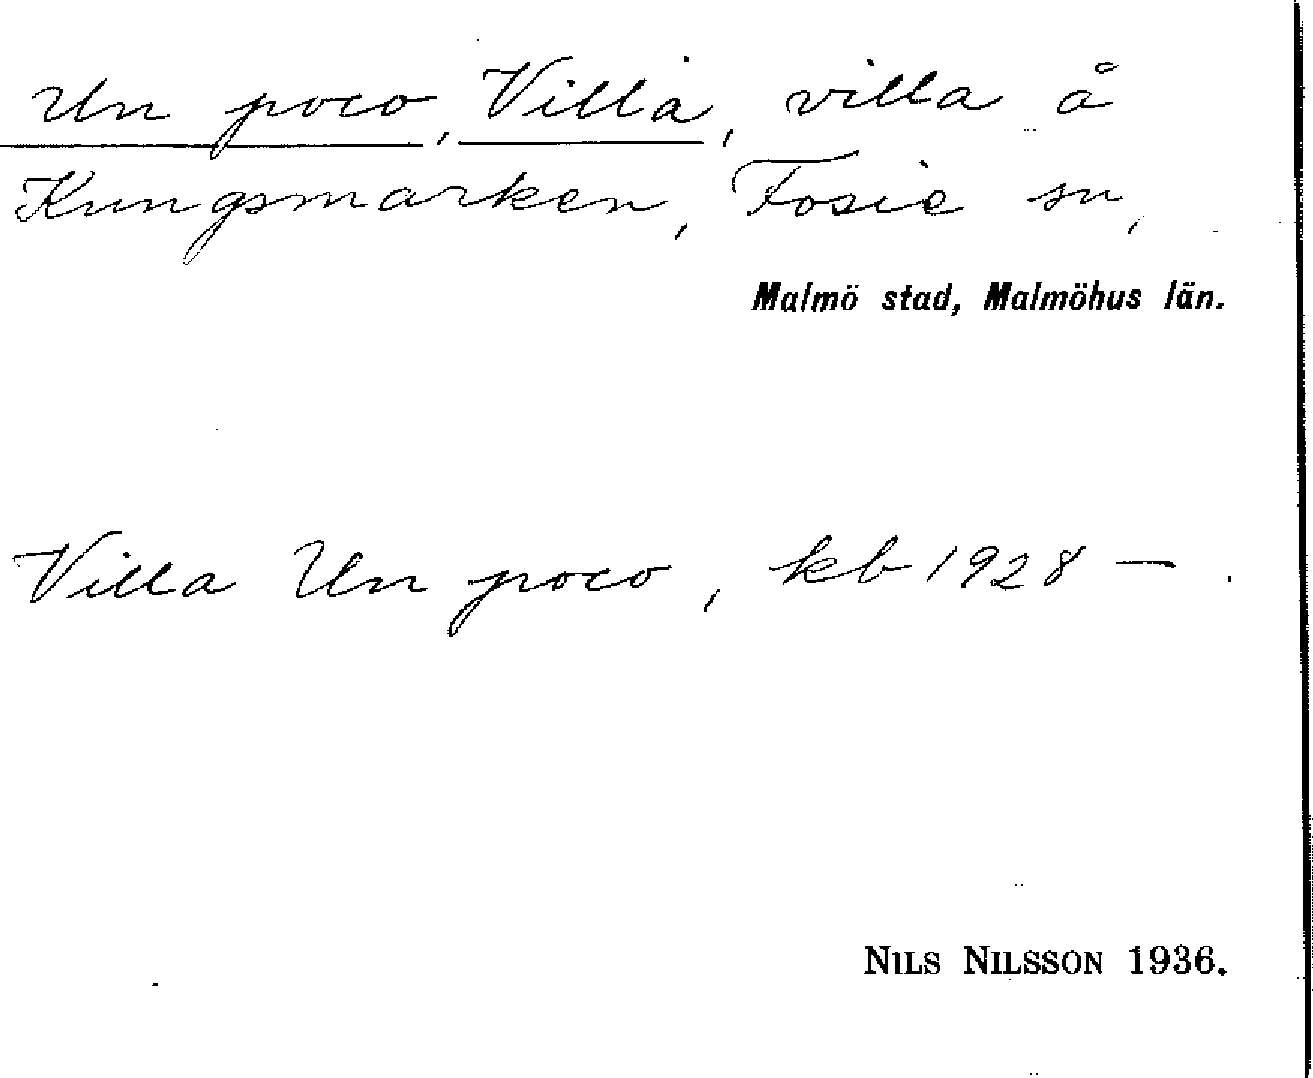 Un poco, Villa, villa å
Kungsmarken, Fosie sn,
Malmö stad, Malmöhus län.
Villa Un poco, kb 1928 — .
NILS NILSSON 1936.